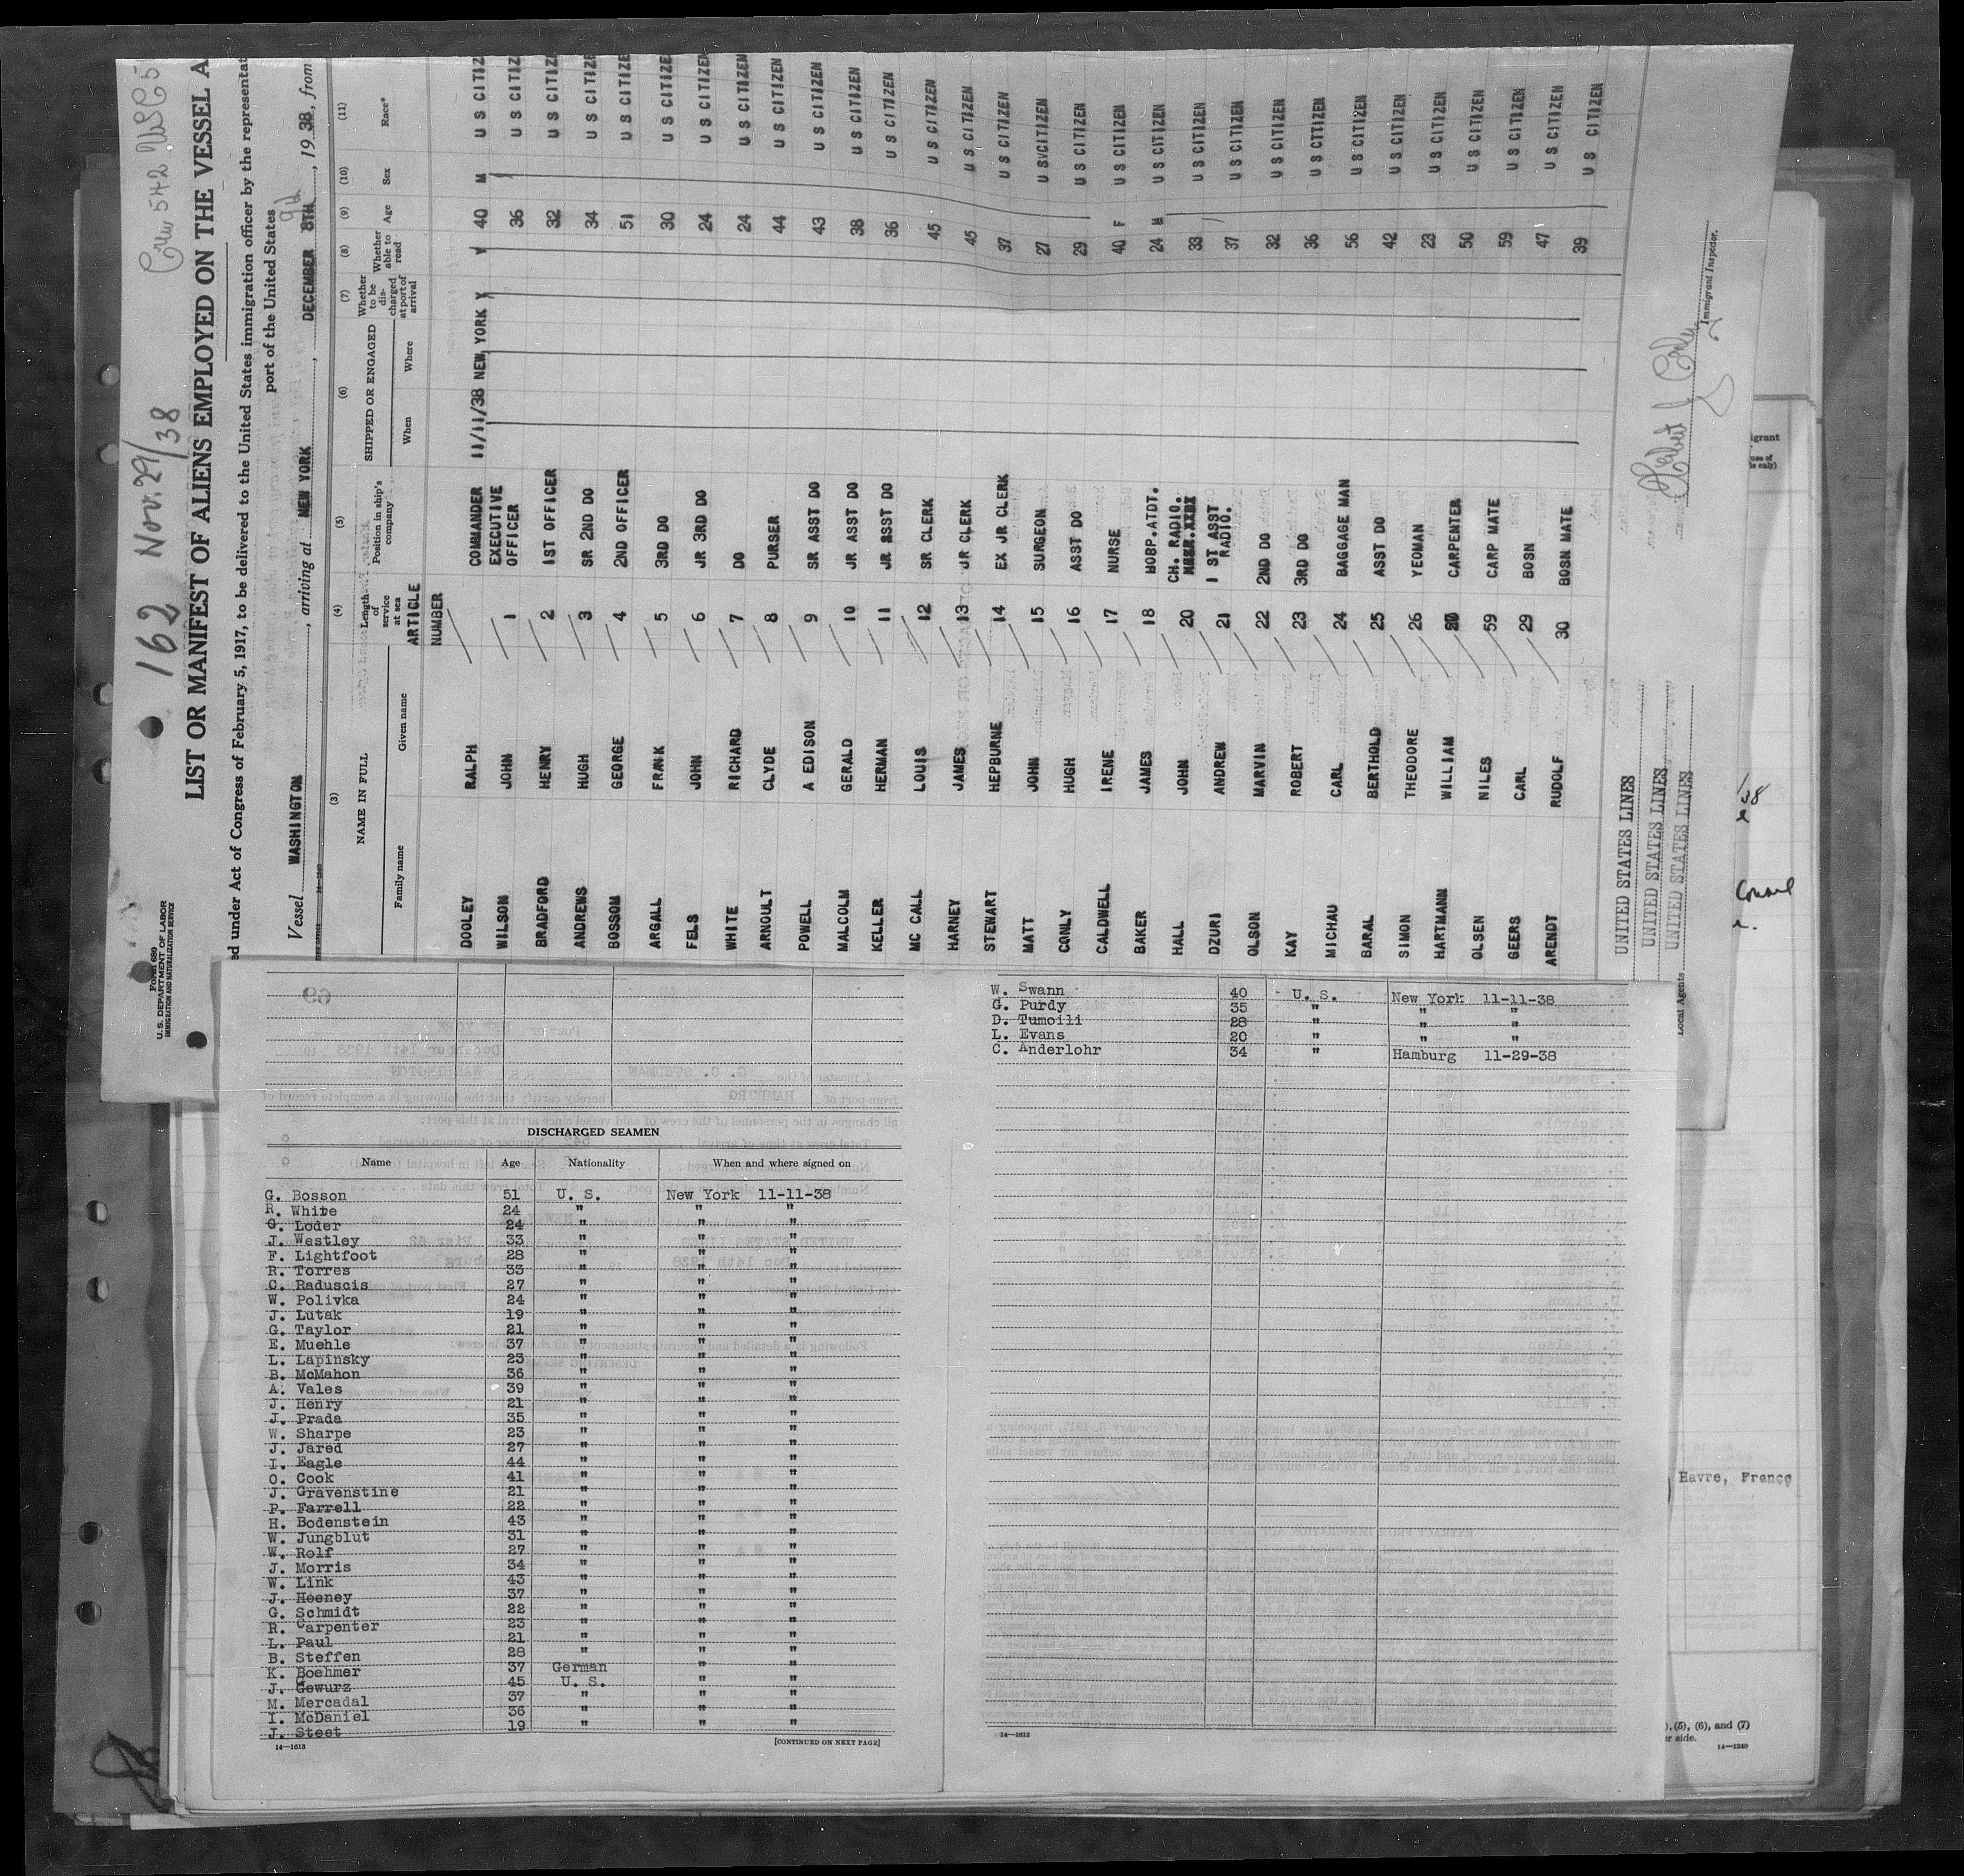 162 Nov. 29/38
Crew 542
FORM 680
U.S. DEPARTMENT OF LABOR
IMMIGRATION AND NATURALIZATION SERVICE
LIST OR MANIFEST OF ALIENS EMPLOYED ON THE VESSEL A
ed under Act of Congress of February 5, 1917, to be delivered to the United States immigration officer by the representat
port of the United States
Vessel WASHINGTON, arriving at NEW YORK, DECEMBER 8TH 9th, 1938, from
(3) (4) (5) (6) (7) (8) (9) (10) (11)
NAME IN FULL Length of service at sea Position in ship's company SHIPPED OR ENGAGED Whether to be discharged at port of arrival Whether able to read Age Sex Race*
Family name Given name When Where
ARTICLE NUMBER
DOOLEY RALPH COMMANDER 11/11/38 NEW YORK Y Y 40 M U S CITIZ
WILSON JOHN 1 EXECUTIVE OFFICER 36 U S CITIZ
BRADFORD HENRY 2 1ST OFFICER 32 U S CITIZE
ANDREWS HUGH 3 SR 2ND DO 34 U S CITIZE
BOSSOM GEORGE 4 2ND OFFICER 51 U S CITIZE
ARGALL FRANK 5 3RD DO 30 U S CITIZE
FELS JOHN 6 JR 3RD DO 24 U S CITIZEN
WHITE RICHARD 7 DO 24 U S CITIZEN
ARNOULT CLYDE 8 PURSER 44 U S CITIZEN
POWELL A EDISON 9 SR ASST DO 43 U S CITIZEN
MALCOLM GERALD 10 JR ASST DO 38 U S CITIZEN
KELLER HERMAN 11 JR ASST DO 36 U S CITIZEN
MC CALL LOUIS 12 SR CLERK 45 U S CITIZEN
HARNEY JAMES 13 JR CLERK 45 U S CITIZEN
STEWART HEPBURNE 14 EX JR CLERK 37 U S CITIZEN
MATT JOHN 15 SURGEON 27 U SVCITIZEN
CONLY HUGH 16 ASST DO 29 U S CITIZEN
CALDWELL IRENE 17 NURSE 40 F U S CITIZEN
BAKER JAMES 18 HOSP.ATDT. 24 M U S CITIZEN
HALL JOHN 20 CH. RADIO. 33 U S CITIZEN
DZURI ANDREW 21 1 ST ASST RADIO. 37 U S CITIZEN
OLSON MARVIN 22 2ND DO 32 U S CITIZEN
KAY ROBERT 23 3RD DO 36 U S CITIZEN
MICHAU CARL 24 BAGGAGE MAN 56 U S CITIZEN
BARAL BERTHOLD 25 ASST DO 42 U S CITIZEN
SIMON THEODORE 26 YEOMAN 23 U S CITIZEN
HARTMANN WILLIAM CARPENTER 50 U S CITIZEN
OLSEN NILES 59 CARP MATE 59 U S CITIZEN
GEERS CARL 29 BOSN 47 U S CITIZEN
ARENDT RUDOLF 30 BOSN MATE 39 U S CITIZEN
UNITED STATES LINES
UNITED STATES LINES
UNITED STATES LINES
Local Agents
Immigrant Inspector.
DISCHARGED SEAMEN
Name Age Nationality When and where signed on
G. Bosson 51 U. S. New York 11-11-38
R. White 24 " " "
G. Loder 24 " " "
J. Westley 33 " " "
F. Lightfoot 28 " " "
R. Torres 33 " " "
C. Raduscis 27 " " "
W. Polivka 24 " " "
J. Lutak 19 " " "
G. Taylor 21 " " "
E. Muehle 37 " " "
L. Lapinsky 23 " " "
B. McMahon 36 " " "
A. Vales 39 " " "
J. Henry 21 " " "
J. Prada 35 " " "
W. Sharpe 23 " " "
J. Jared 27 " " "
I. Eagle 44 " " "
O. Cook 41 " " "
J. Gravenstine 21 " " "
P. Farrell 22 " " "
H. Bodenstein 43 " " "
W. Jungblut 31 " " "
W. Rolf 27 " " "
J. Morris 34 " " "
W. Link 43 " " "
J. Heeney 37 " " "
G. Schmidt 22 " " "
R. Carpenter 23 " " "
L. Paul 21 " " "
B. Steffen 28 " " "
K. Boehmer 37 German " "
J. Gewurz 45 U. S. " "
M. Mercadal 37 " " "
I. McDaniel 36 " " "
J. Steet 19 " " "
14—1613
[CONTINUED ON NEXT PAGE]
W. Swann 40 U. S. New York 11-11-38
G. Purdy 35 " " "
D. Tumoili 28 " " "
L. Evans 20 " " "
C. Anderlohr 34 " Hamburg 11-29-38
14—1613
Havre, France
), (5), (6), and (7)
er side.
14—1240